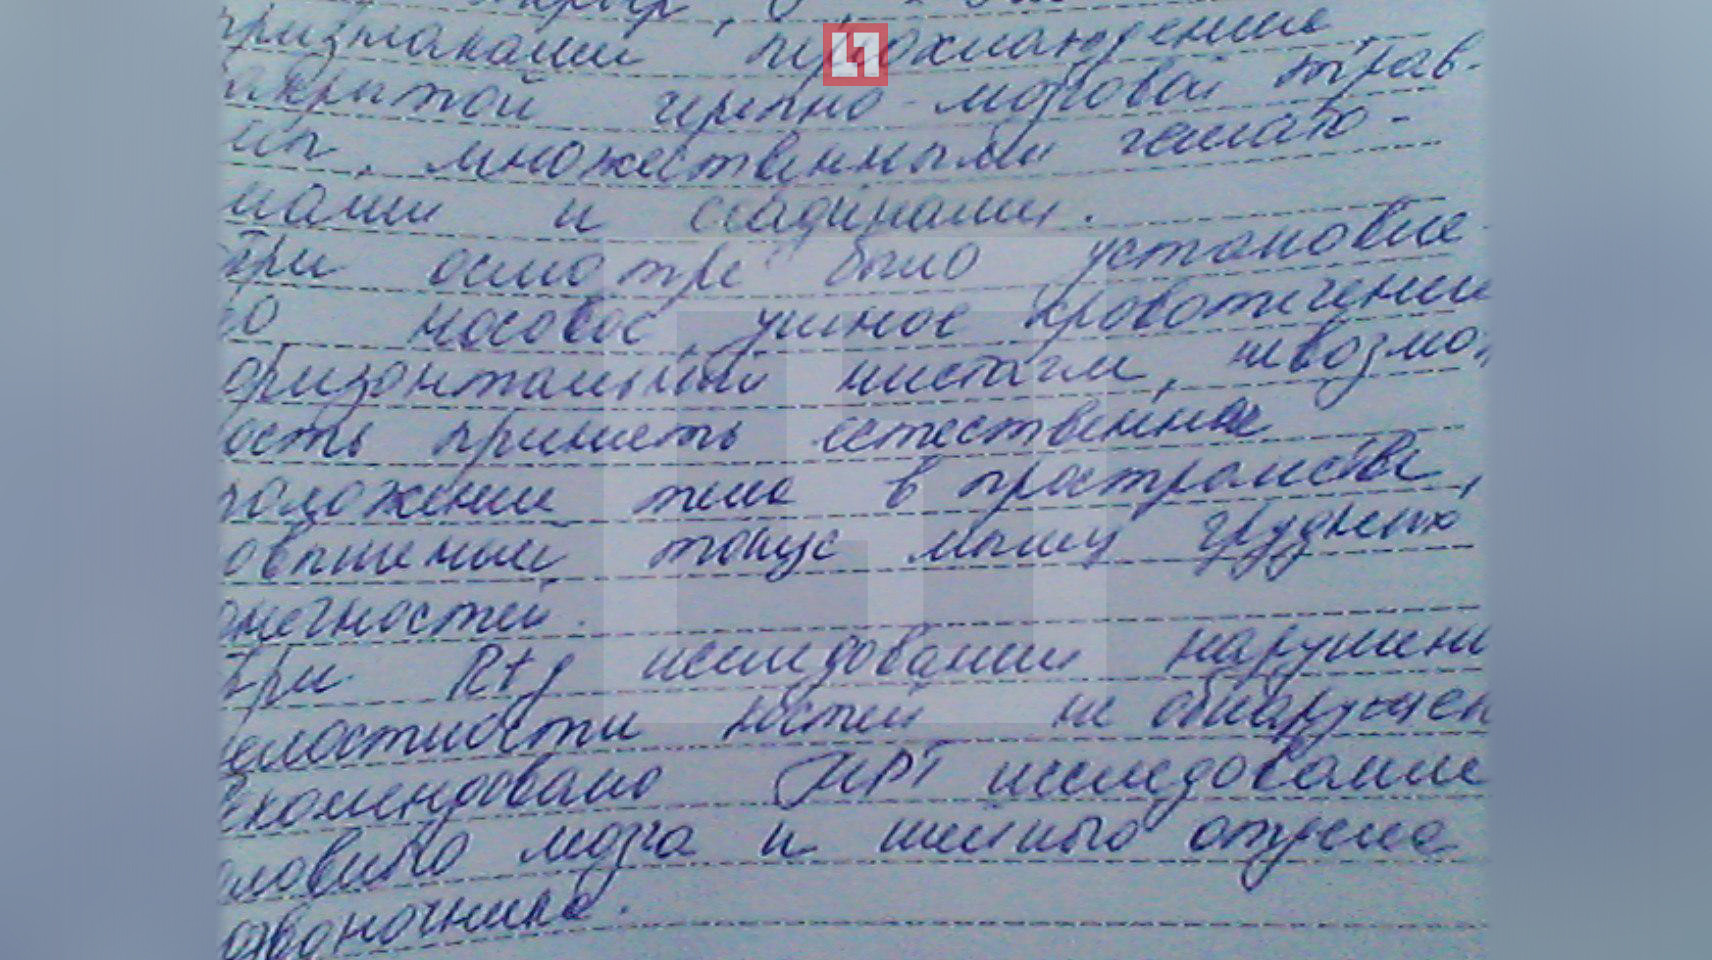 признаками переохлаждения,
закрытой черепно-мозговой трав-
мы, множественными гемато-
мами и ссадинами.
При осмотре было установле-
но носовое, ушное кровотечение
горизонтальный нистагм, невозмо
ость принять естественное
положение тела в пространстве,
овышеный тонус мышц грудных
онечностей.
При Rtg исследовании нарушени
целостности костей не обнаружен
екомендовано МРТ исследование
оловного мозга и шейного отдела
озвоночника.